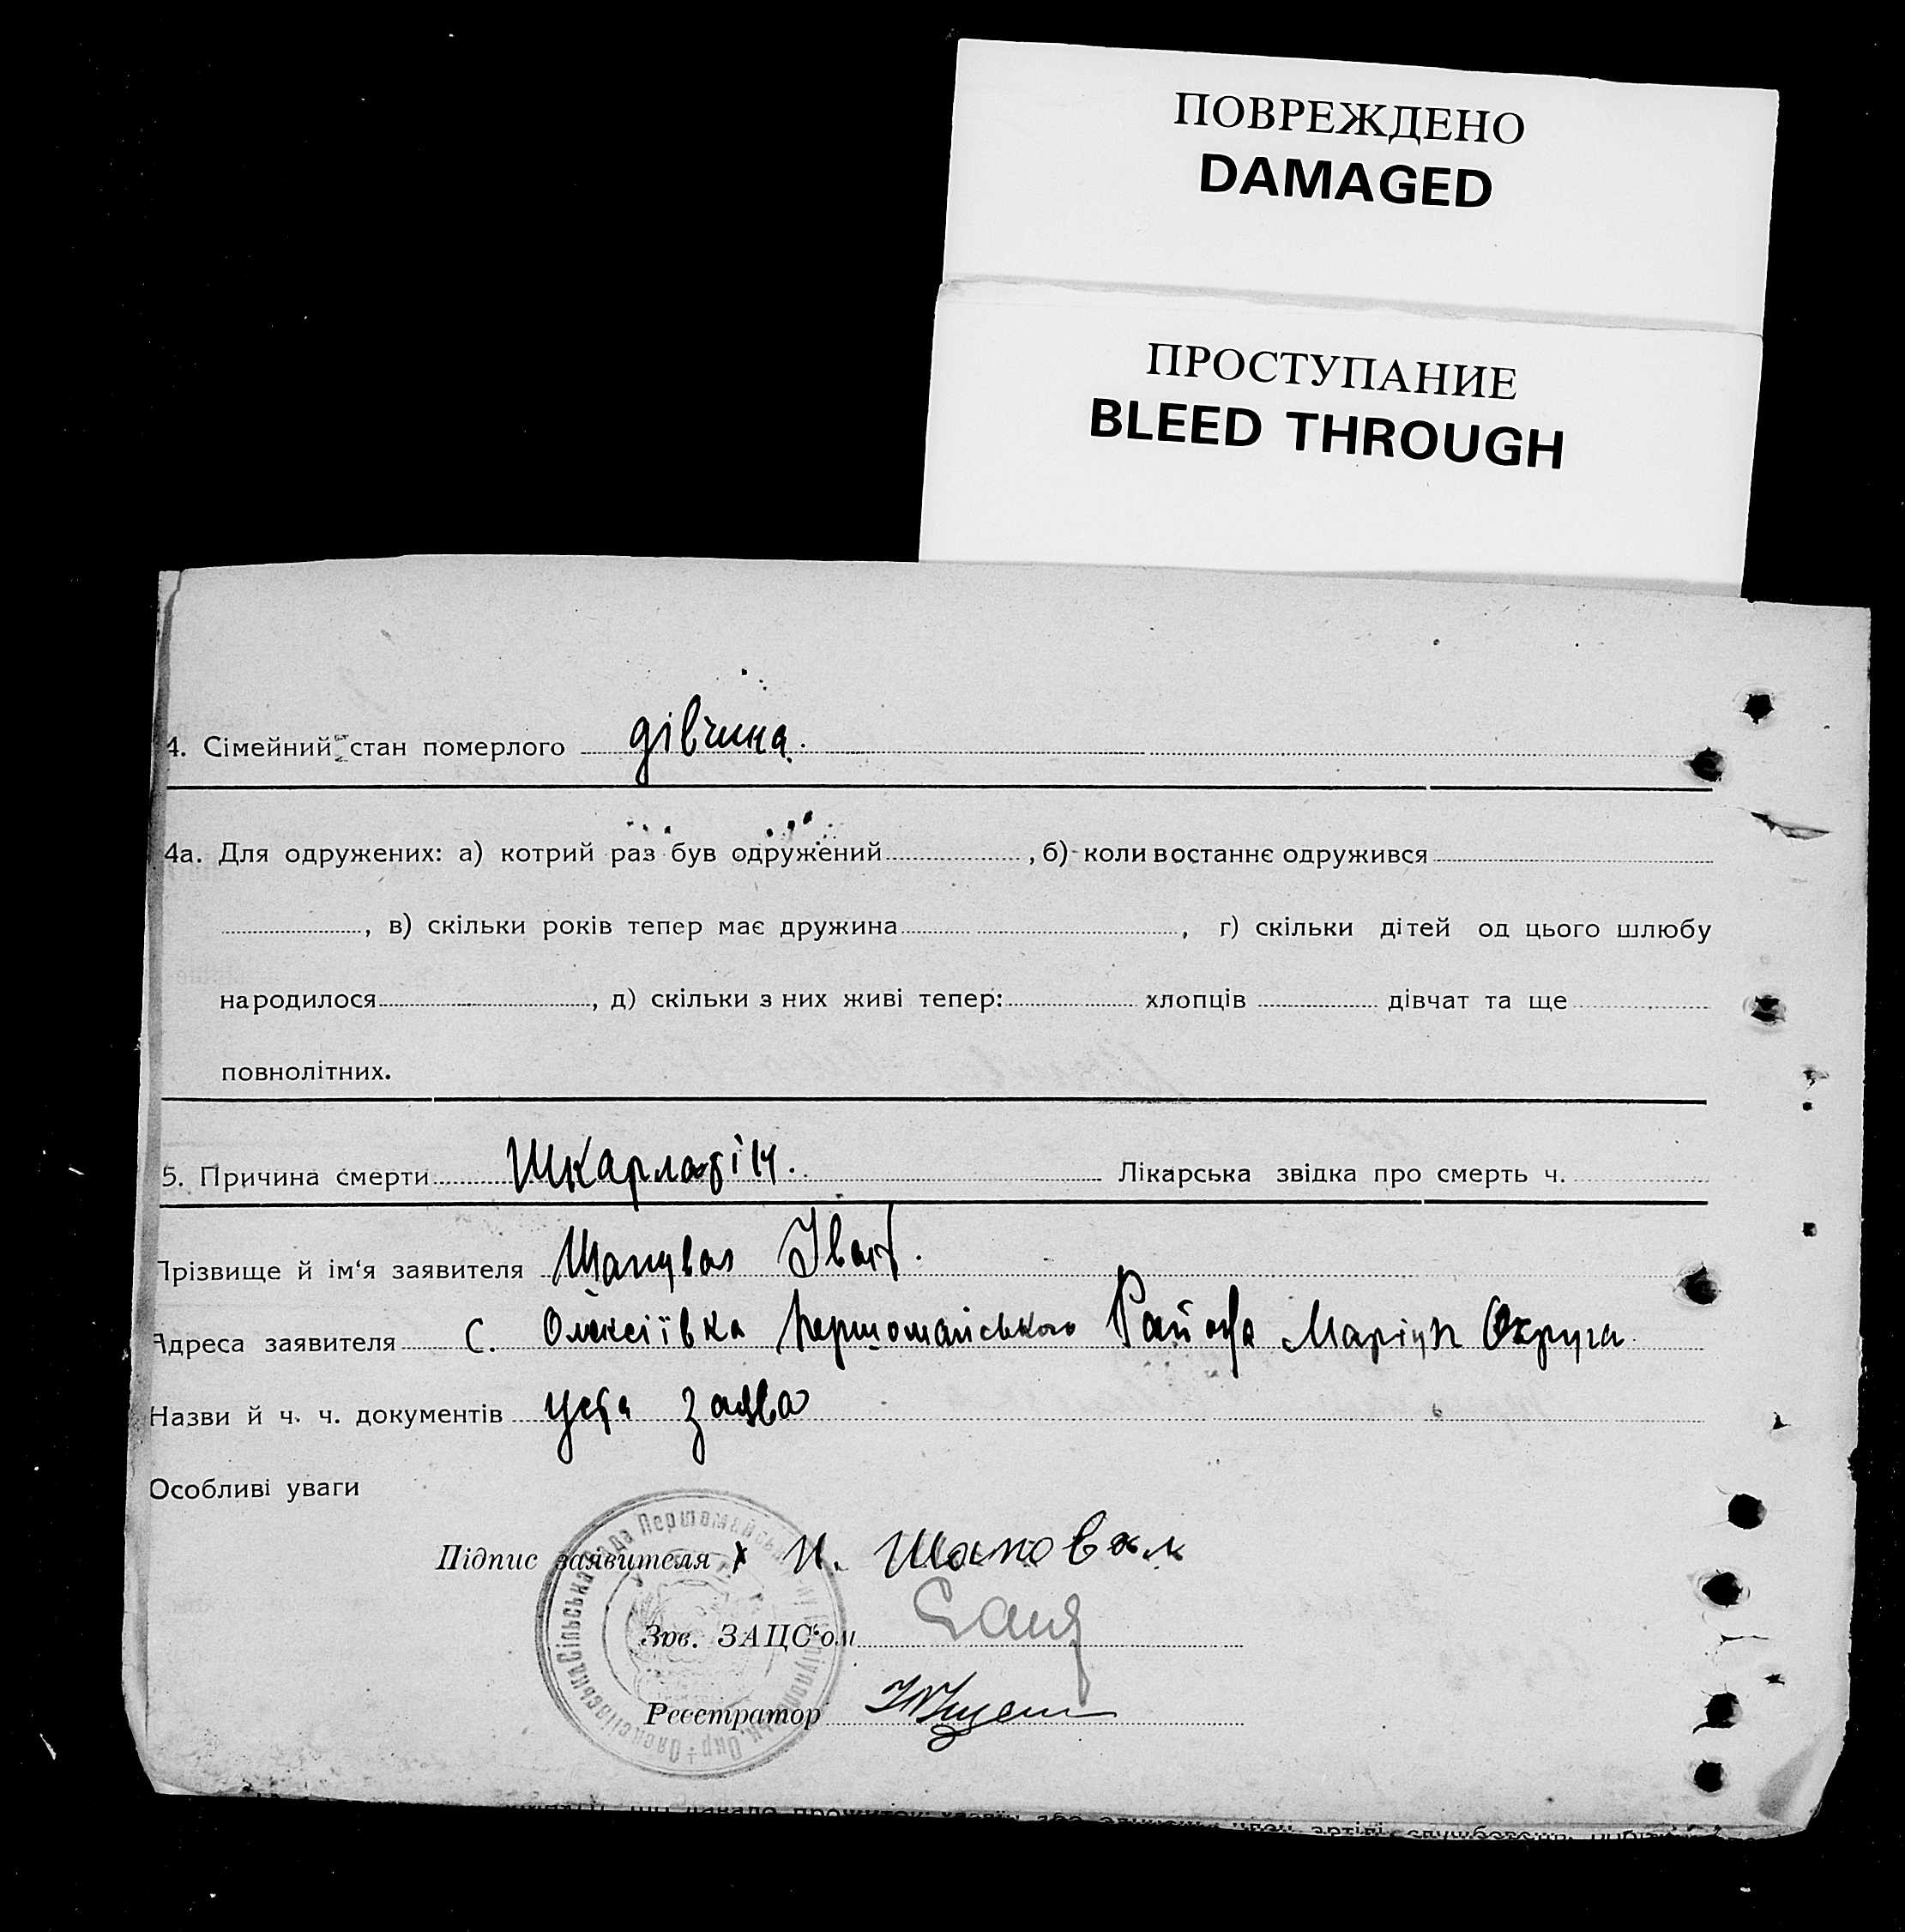 ПОВРЕЖДЕНО
DAMAGED
ПРОСТУПАНИЕ
BLEED THROUGH
4. Сімейний стан померлого дівчина.
4а. Для одружених: а) котрий раз був одружений , б) коли востаннє одружився
, в) скільки років тепер має дружина , г) скільки дітей од цього шлюбу
народилося , д) скільки з них живі тепер: хлопців дівчат та ще
повнолітних.
5. Причина смерти Шкарлатін. Лікарська звідка про смерть ч.
Прізвище й ім'я заявителя Шапувал Іван.
Адреса заявителя С. Олексіївка Першомайського Района Маріуп Округа
Назви й ч. ч. документів уста заява
Особливі уваги
Підпис заявителя х И. Шаповал
Зав. ЗАЦС'ом
Реєстратор
Олексіївська Сільська Рада Першомайськ. р-ну Маріупольськ. Окр.